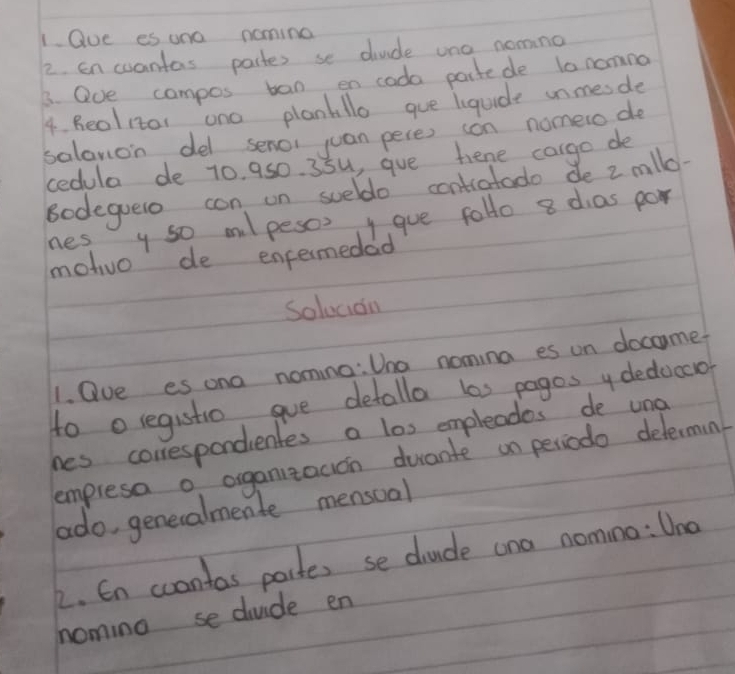 1. Que es una nomina
2. En cuantas partes se divide una nomina
3. Que campos ban en cada parte de la nomina
4. Realizar una plantilla que liquide un mes de
salarion del señor juan peres con numero de
cedula de 70.950.354, que tiene cargo de
Bodeguero con un sueldo contratado de 2 millo-
nes y 50 mil pesos y que falto 8 dias por
motivo de enfermedad
Solución
1. Que es una nomina: Una nomina es un docume-
to o registro que detalla los pagos y deduccio-
nes correspondientes a los empleados de una
empresa o organización durante un periodo determin-
ado, generalmente mensual
2. En cuantas partes se divide una nomina: Una
nomina se divide en